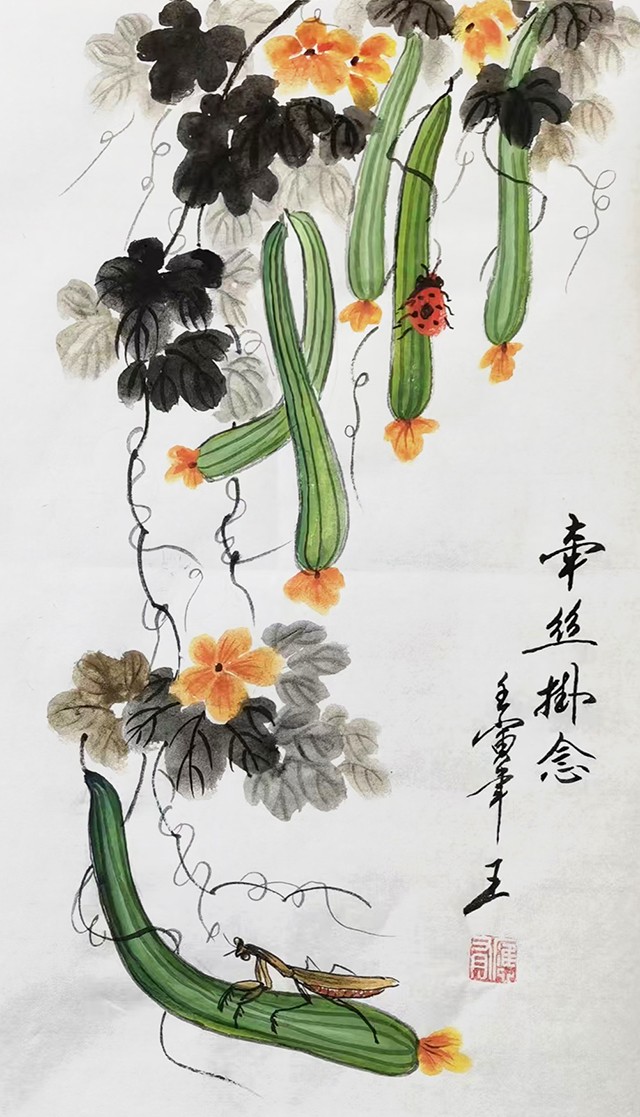 牵丝掛念
壬寅年 王